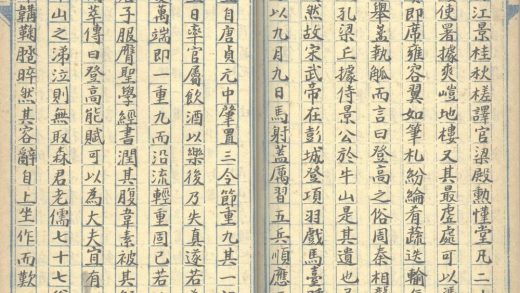 江景桂秋槎譯官梁殿勲慬堂凡二
使署據爽塏地樓又其最虛處可以馮
即席雍容翼如筆札紛綸肴蔬迭輸
舉盞執觚而言曰登高之俗周秦相
孔梁丘據侍景公於牛山是其遺也
然故宋武帝在彭城登項羽戲馬臺
以九月九日馬射蓋厲習五兵順應
自唐貞元中肇置三令節重九其一
日率官屬飲酒以樂後乃失真遂若
萬端即一重九而沿流輕重固已若
子服膺聖學經書潤其腹韋素被其
萃傳曰登高能賦可以為大夫宜有
山之涕泣則無取森君老儒七十七
韝鞠睟然其容辭自上坐作而歎